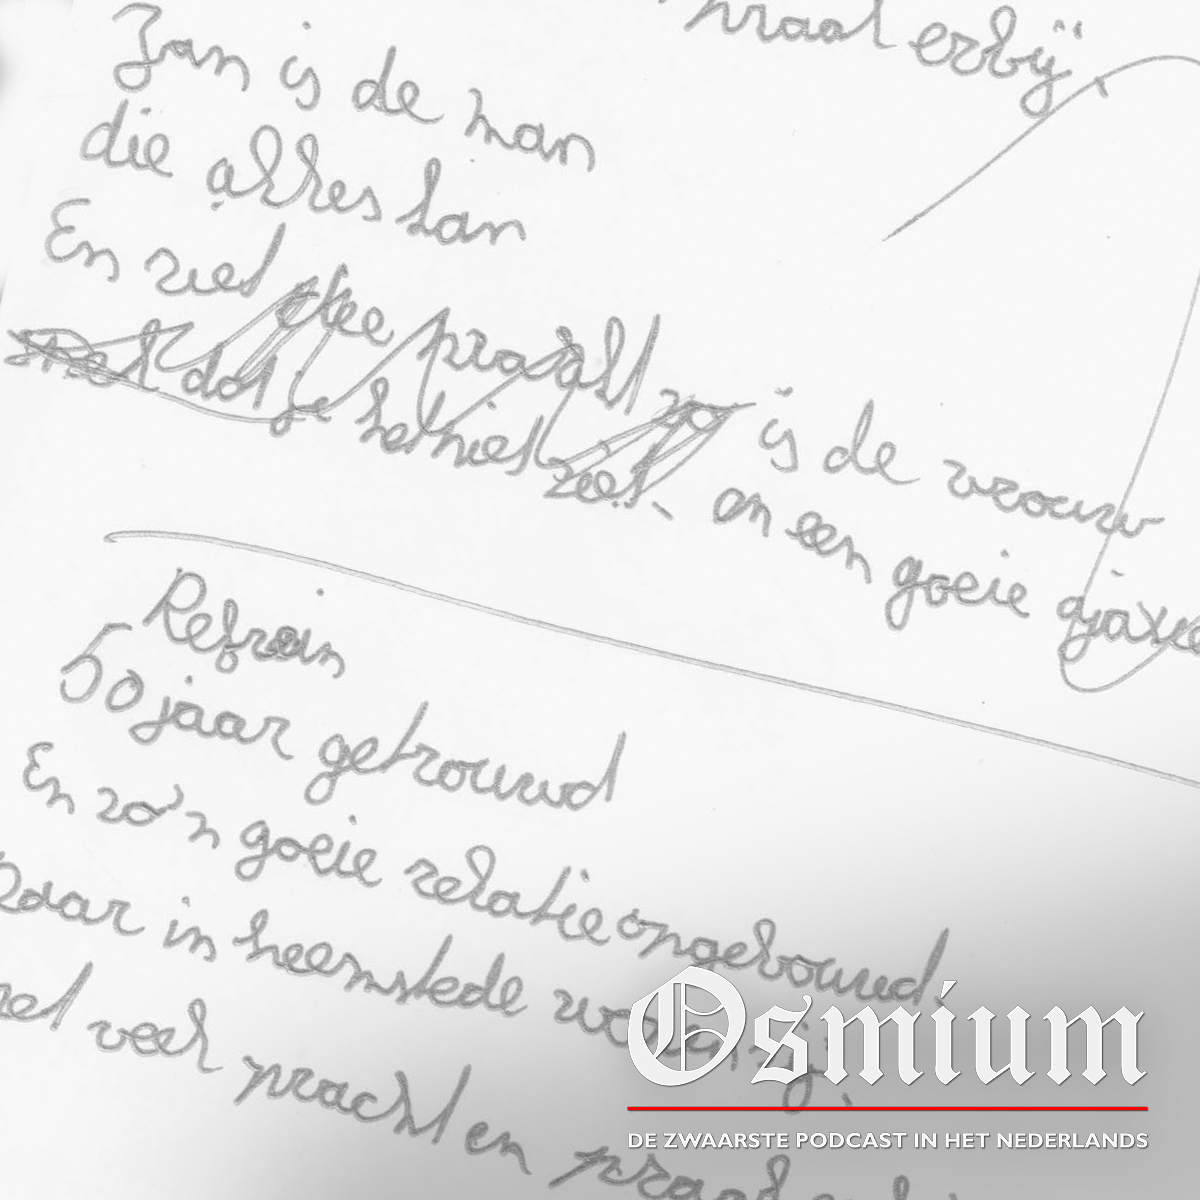 praal erbij.
Jan is de man
die alles kan
En ziet
met dat je het niet ziet. is de vrouw
en een goeie
Refrein
50 jaar getrouwd
En zo'n goeie relatie opgebouwd.
Daar in heemstede wonen zij
met veel pracht en praal
Osmium
DE ZWAARSTE PODCAST IN HET NEDERLANDS